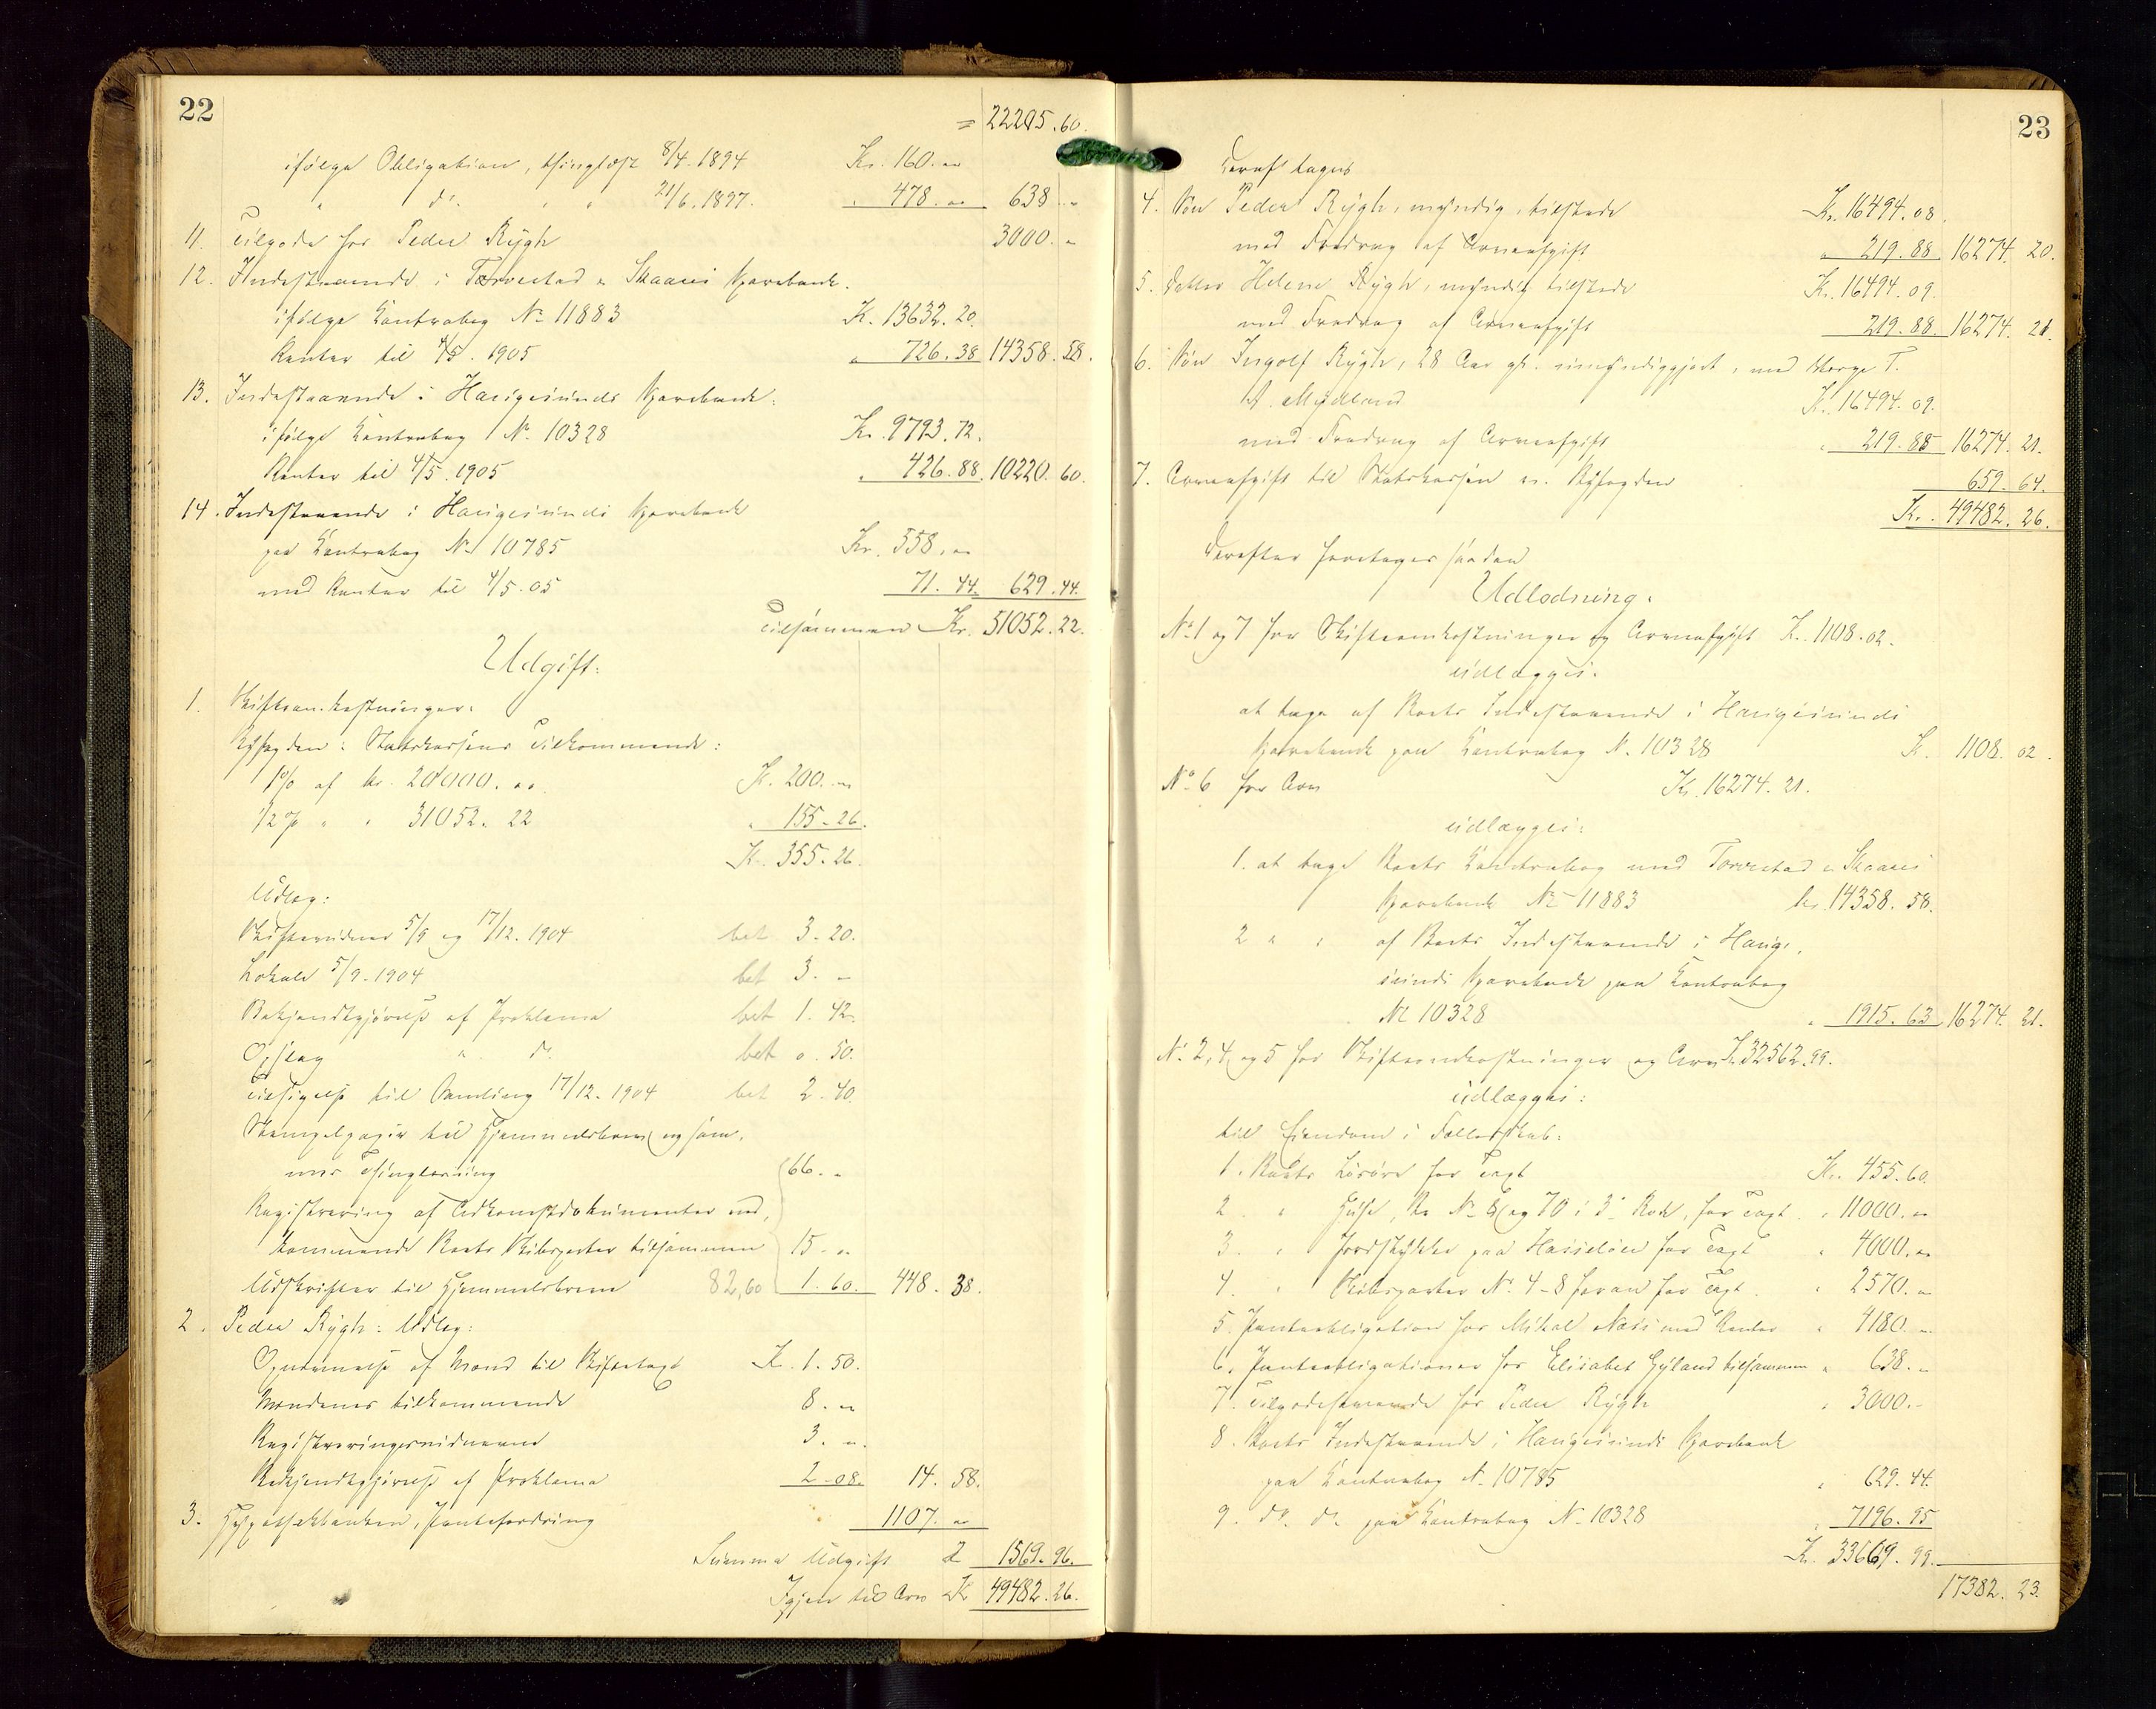 22
= 22205.60.
ifølge Obligation, thinglæst 8/4-1894 Kr. 160. „
„ do. „ „ 21/6.1897. „ 478. „ 638. „
11. Tilgode hos Peder Rygh 3000. „
12. Indestaaende i Torvestad & Skaares Sparebank.
ifølge Kontrabog No 11883 Kr. 13632.20.
Renter til 4/5. 1905 „ 726.38 14358.58.
13. Indestaaende i Haugesunds Sparebank.
ifølge Kontrabog No. 10328 Kr. 9793.72.
Renter til 4/5.1905 „ 426.88. 10220.60.
14. Indestaaende i Haugesunds Sparebank
paa Kontrabog No 10785 Kr. 558. „
med Renter til 4/5-05 71.44. 629.44.
Tilsammen Kr. 51052.22.
Udgift.
1. Skifteomkostninger.
Byfogden: Statskassens Tilkommende:
1% af kr. 20000. „ Kr. 200. „
1/2% „ „ 31052.22 „ 155-26.
Kr. 355.26.
Udlæg:
Skiftevidner 5/9 og 17/12.1904 bet 3-20.
Lokale 5/9-1904 bet 3. „
Bekjendtgjørelse af Proklama bet 1.42.
Opslag „ do. bet 0.50.
Tilsigelse til Samling 17/12-1904 bet 2.40.
Stempelpapir til Hjemmelsbrev og sam-
mes Thinglæsning 66. „
Registrering af Adkomstdokumenter ved-
kommende Boets Skibsparter tilsammen 15. „
Udskrifter til Hjemmelsbrev 82,60 1.60. 448.38.
2. Peder Rygh: Udlæg:
Opnævnelse af Mænd til Skiftetaxt Kr. 1.50.
Mændenes tilkommende 8. „
Registreringsvidnerne 3. „
Bekjendtgjørelse af Proklama 2-08. 14.58.
3. Hypothekbanken, Pantefordring 1107. „
Summa Udgift „ 1569.96.
Igjen til Arv Kr 49482.26.
23
Deraf tages
4. Søn Peder Rygh, myndig, tilstede Kr. 16494.08.
med Fradrag af Arveafgift „ 219.88. 16274.20.
5. Datter Helene Rygh, myndig tilstede Kr. 16494.09.
med Fradrag af Arveafgift 219.88. 16274.21.
6. Søn Ingolf Rygh, 28 Aar gl. umyndiggjort, med Værge T.
A. Mydland Kr. 16494.09.
med Fradrag af Arveafgift „ 219.88 16274.21.
7. Arveafgift til Statskassen v. Byfogden 659.64.
Kr. 49482.26.
Derefter foretages saadan
Udlodning.
No. 1 og 7 for Skifteomkostninger og Arveafgift Kr. 1108.02.
udlægges.
at tage af Boets Indestaaende i Haugesunds
Sparebank paa Kontrabog No. 10328 Kr. 1108.02.
No. 6 for Arv Kr. 16274.21.
udlægges:
1. at tage Boets Kontrabog med Torvestad & Skaares
Sparebank No 11883 kr. 14358.58.
2 „ „ af Boets Indestaaende i Hauge-
sunds Sparebank paa Kontrabog
No 10328 „ 1915.63 16274.21.
No. 2, 4 og 5 for Skifteomkostninger og Arv Kr. 32562.99.
udlægges:
til Eiendom i Fællesskab:
1. Boets Løsøre for Taxt Kr. 455.60.
2. „ Huse, Br No 8 og 70 i 3. Rode, for Taxt „ 11000. „
3. „ Jordstykke paa Hasseløen for Taxt „ 4000. „
4. „ Skibsparter No. 4-8 foran for Taxt „ 2570. „
5. Panteobligation hos Mikal Næss med Renter „ 4180. „
6. Panteobligationer hos Elisabet Gyland tilsammen „ 638. „
7. Tilgodehavende hos Peder Rygh „ 3000. „
8. Boets Indestaaende i Haugesunds Sparebank
paa Kontrabog No. 10785 „ 629.44.
9. do. do. paa Kontrabog No. 10328 „ 7196.95
Kr. 33669.99.
17382.23.